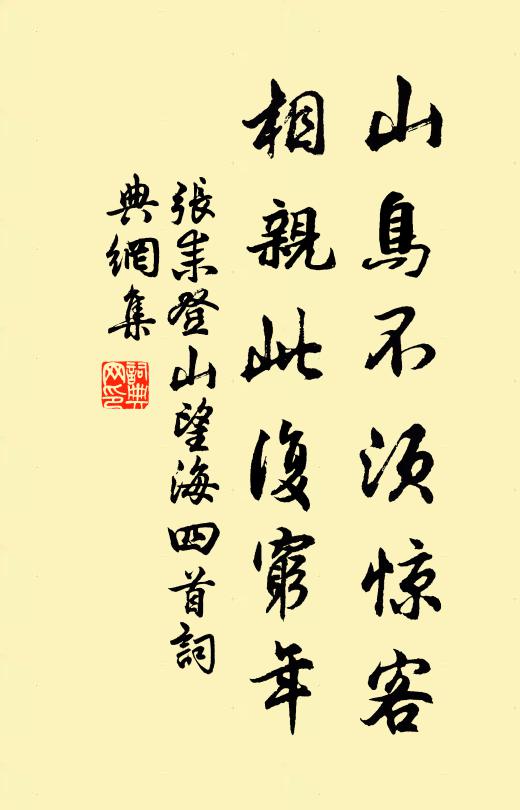 山鳥不須惊客
相親此復窮年
張耒登山望海四首詞
典網集
詞典
网印